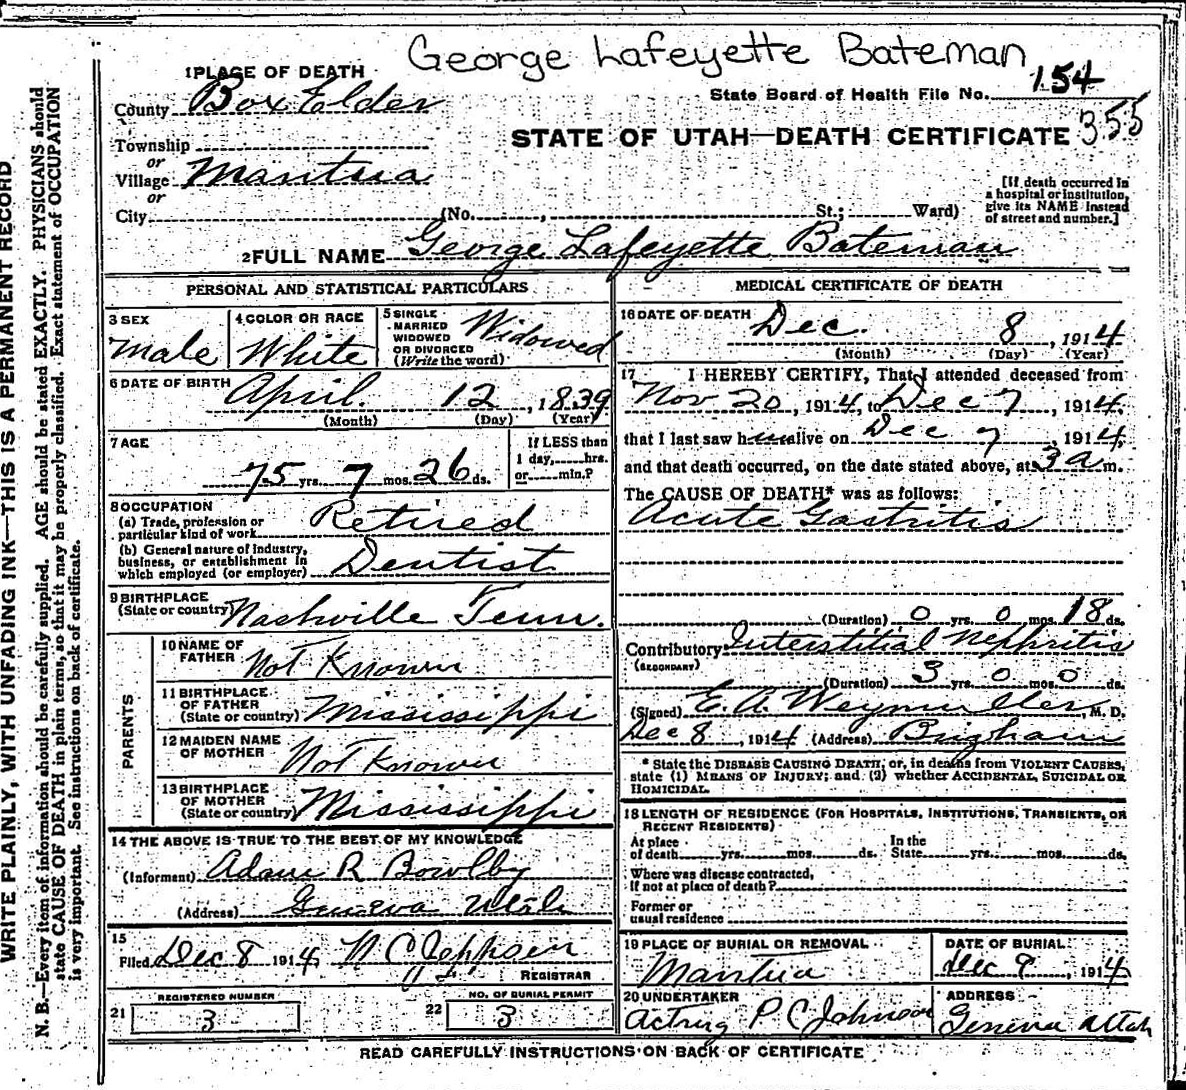 George Lafeyette Bateman
1 PLACE OF DEATH
154
County Box Elder
State Board of Health File No.
355
STATE OF UTAH—DEATH CERTIFICATE
Township
or
Village Mantua
or
City (No. , St.; Ward)
[If death occurred in a hospital or institution, give its NAME instead of street and number.]
2 FULL NAME George Lafeyette Bateman
PERSONAL AND STATISTICAL PARTICULARS
3 SEX
Male
4 COLOR OR RACE
White
5 SINGLE
MARRIED
WIDOWED
OR DIVORCED
(Write the word)
Widowed
6 DATE OF BIRTH April 12, 1839
(Month) (Day) (Year)
7 AGE
75 yrs. 7 mos. 26 ds.
If LESS than
1 day, hrs.
or min.?
8 OCCUPATION
(a) Trade, profession or
particular kind of work Retired
(b) General nature of industry,
business, or establishment in
which employed (or employer) Dentist
9 BIRTHPLACE
(State or country) Nashville Tenn.
PARENTS
10 NAME OF
FATHER Not Known
11 BIRTHPLACE
OF FATHER
(State or country) Mississippi
12 MAIDEN NAME
OF MOTHER Not Known
13 BIRTHPLACE
OF MOTHER
(State or country) Mississippi
14 THE ABOVE IS TRUE TO THE BEST OF MY KNOWLEDGE
(Informant) Adam R Bowlby
(Address) Geneva Utah
15
Filed Dec 8 1914 N C Jeppsen
REGISTRAR
REGISTERED NUMBER
21 3
NO. OF BURIAL PERMIT
22 3
MEDICAL CERTIFICATE OF DEATH
16 DATE OF DEATH Dec. 8, 1914
(Month) (Day) (Year)
17 I HEREBY CERTIFY, That I attended deceased from
Nov 20, 1914, to Dec 7, 1914,
that I last saw him alive on Dec 7, 1914,
and that death occurred, on the date stated above, at 3 a m.
The CAUSE OF DEATH* was as follows:
Acute Gastritis
(Duration) 0 yrs. 0 mos. 18 ds.
Contributory Interstitial Nephritis
(SECONDARY)
(Duration) 3 yrs. 0 mos. 0 ds.
(Signed) E. A. Weymuller, M. D.
Dec 8, 1914 (Address) Brigham
* State the DISEASE CAUSING DEATH, or, in deaths from VIOLENT CAUSES,
state (1) MEANS OF INJURY; and (2) whether ACCIDENTAL, SUICIDAL OR
HOMICIDAL.
18 LENGTH OF RESIDENCE (FOR HOSPITALS, INSTITUTIONS, TRANSIENTS, OR
RECENT RESIDENTS)
At place
of death yrs. mos. ds.
In the
State yrs. mos. ds.
Where was disease contracted,
if not at place of death?
Former or
usual residence
19 PLACE OF BURIAL OR REMOVAL
Mantua
DATE OF BURIAL
Dec 9, 1914
20 UNDERTAKER
Acting P C Johnson
ADDRESS
Geneva Utah
READ CAREFULLY INSTRUCTIONS ON BACK OF CERTIFICATE
WRITE PLAINLY, WITH UNFADING INK—THIS IS A PERMANENT RECORD
N. B.—Every item of information should be carefully supplied. AGE should be stated EXACTLY. PHYSICIANS should
state CAUSE OF DEATH in plain terms, so that it may be properly classified. Exact statement of OCCUPATION
is very important. See instructions on back of certificate.